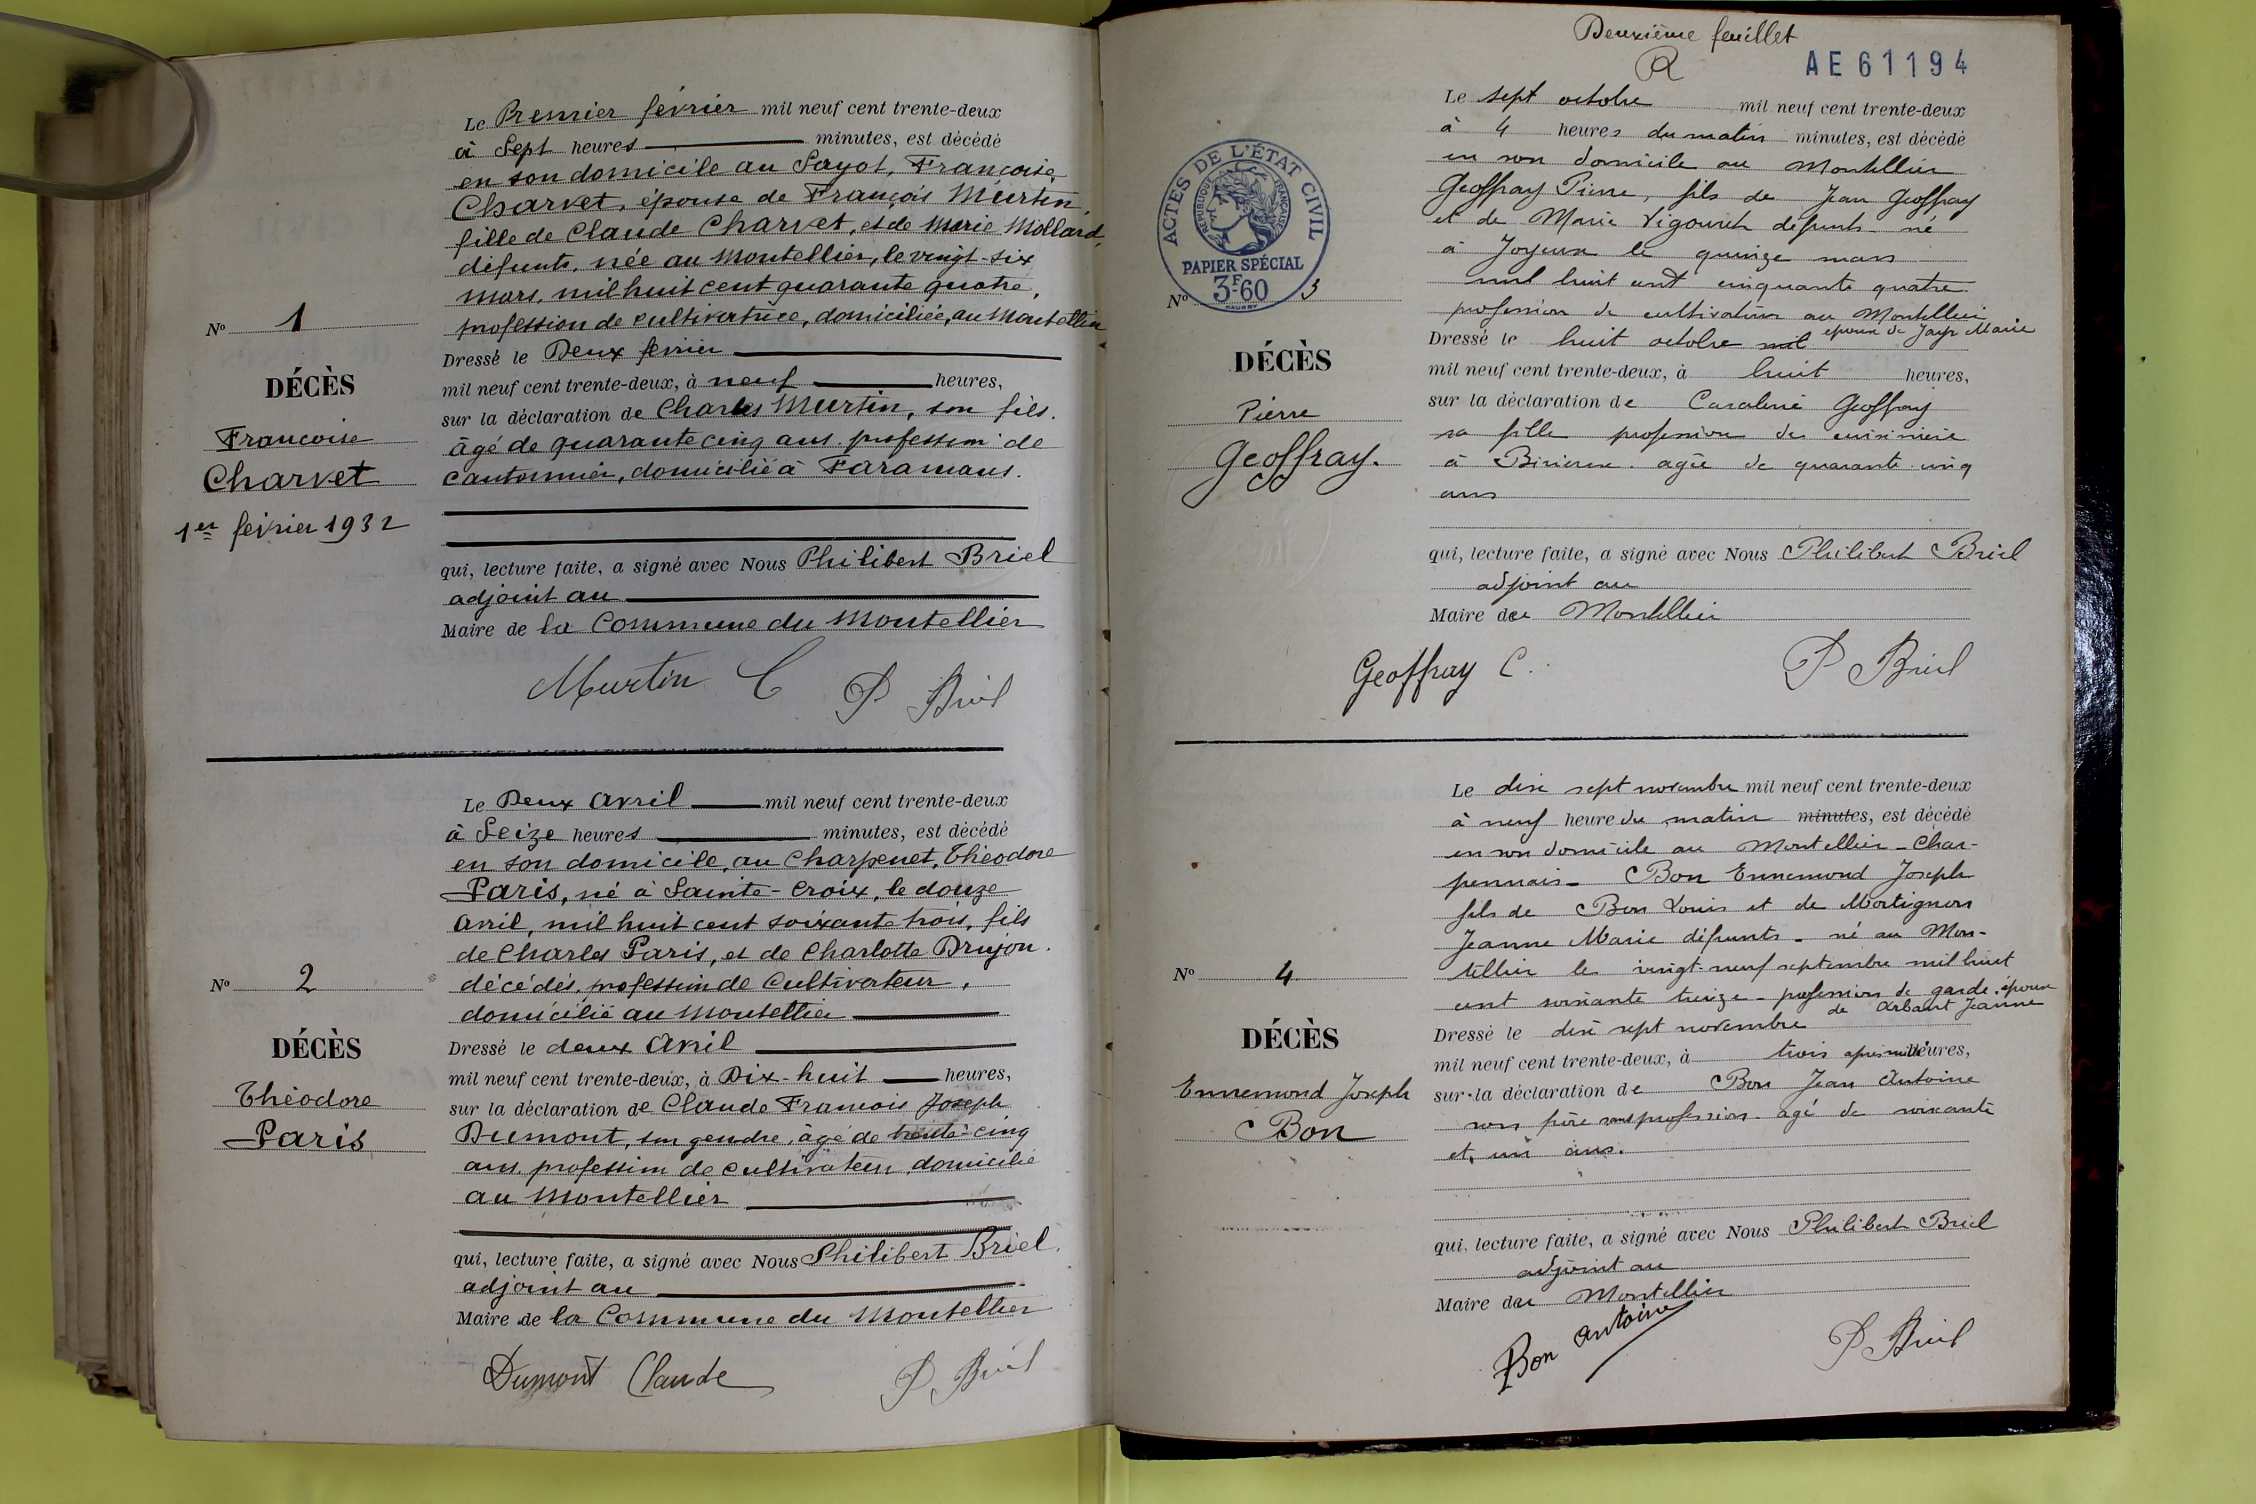 Le Premier février mil neuf cent trente-deux
à Sept heures minutes, est décédé
en son domicile au Sayot, Francoise
Charvet, épouse de François Murtin,
fille de Claude Charvet, et de Marie Mollard,
défunts, née au Montellier, le vingt-six
mars, mil huit cent quarante quatre,
profession de cultivatrice, domiciliée, au Montellier
Nº 1
DÉCÈS
Francoise
Charvet
1er février 1932
Dressé le Deux février
mil neuf cent trente-deux, à neuf heures,
sur la déclaration de Charles Murtin, son fils.
âgé de quarante cinq ans, profession de
cantonnier, domicilié à Faramans.
qui, lecture faite, a signé avec Nous Philibert Briel
adjoint au
Maire de la Commune du Montellier
Murtin C P Briel
Le Deux Avril mil neuf cent trente-deux
à Seize heures minutes, est décédé
en son domicile, au Charpenet, Théodore
Paris, né à Sainte-Croix, le douze
Avril, mil huit cent soixante trois, fils
de Charles Paris, et de Charlotte Drujon.
décédés, profession de Cultivateur,
domicilié au Montellier
Nº 2
DÉCÈS
Théodore
Paris
Dressé le deux Avril
mil neuf cent trente-deux, à Dix-huit heures,
sur la déclaration de Claude François Joseph
Dumont, son gendre, âgé de trente-cinq
ans, profession de cultivateur, domicilié
au Montellier
qui, lecture faite, a signé avec Nous Philibert Briel.
adjoint au
Maire de la Commune du Montellier
Dumont Claude P Briel
Deuxième feuillet
R
AE 61194
ACTES DE L'ÉTAT CIVIL
RÉPUBLIQUE FRANÇAISE
PAPIER SPÉCIAL
3F60
Le sept octobre mil neuf cent trente-deux
à 4 heures du matin minutes, est décédé
en son domicile au Montellier
Geoffray Pierre, fils de Jean Geoffray
et de Marie Vigouret défunts né
à Joyeux le quinze mars
mil huit cent cinquante quatre
profession de cultivateur au Montellier
époux de Jayr Marie
Nº 3
DÉCÈS
Pierre
Geoffray.
Dressé le huit octobre mil
mil neuf cent trente-deux, à huit heures,
sur la déclaration de Caroline Geoffray
sa fille profession de cuisinière
à Birieux. agée de quarante cinq
ans
qui, lecture faite, a signé avec Nous Philibert Briel
adjoint au
Maire de Montellier
Geoffray C. P Briel
Le dix sept novembre mil neuf cent trente-deux
à neuf heure du matin minutes, est décédé
en son domicile au Montellier - Char-
pennais - Bon Ennemond Joseph
fils de Bon Louis et de Martignon
Jeanne Marie défunts - né au Mon-
tellier le vingt-neuf septembre mil huit
cent soixante treize - profession de garde. époux
de Arbant Jeanne
Nº 4
DÉCÈS
Ennemond Joseph
Bon
Dressé le dix sept novembre
mil neuf cent trente-deux, à trois après midi heures,
sur la déclaration de Bon Jean Antoine
son frère sans profession - agé de soixante
et un ans.
qui, lecture faite, a signé avec Nous Philibert Briel
adjoint au
Maire du Montellier
Bon antoine P Briel